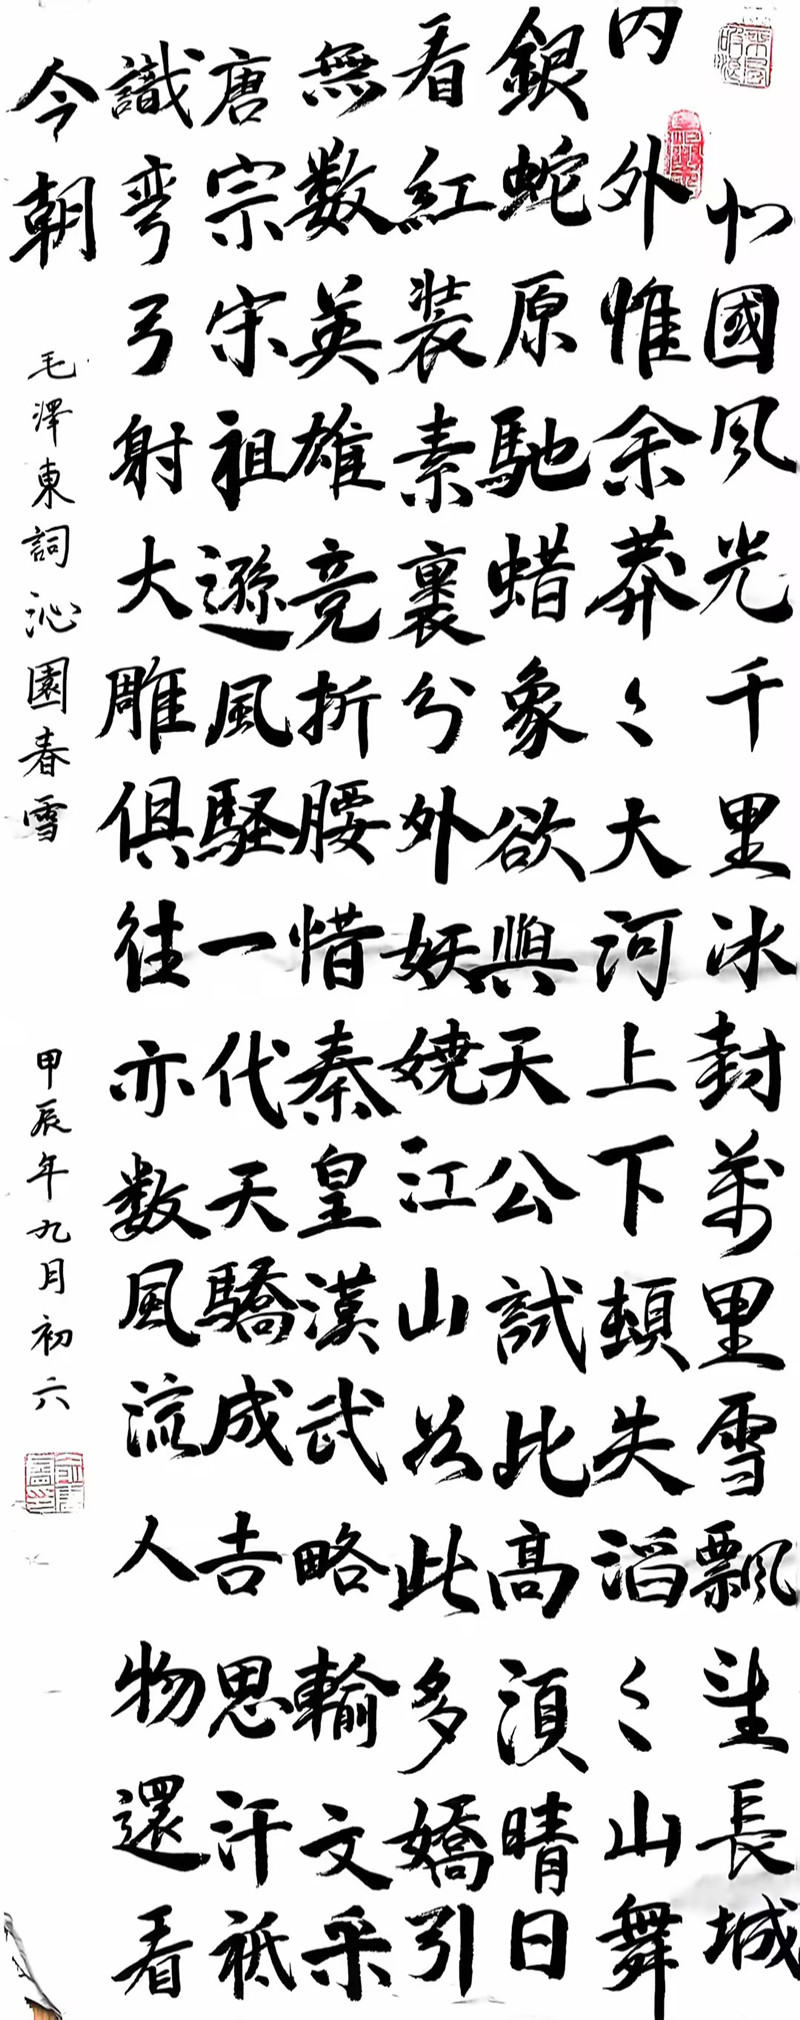 北國風光千里冰封萬里雪飄望長城
内外惟余莽〻大河上下頓失滔〻山舞
銀蛇原馳蜡象欲與天公試比高須晴日
看紅装素裹分外妖嬈江山如此多嬌引
無数英雄竞折腰惜秦皇漢武略輸文采
唐宗宋祖遜風騷一代天驕成吉思汗祗
識弯弓射大雕俱往亦数風流人物還看
今朝
毛澤東詞沁園春雪
甲辰年九月初六